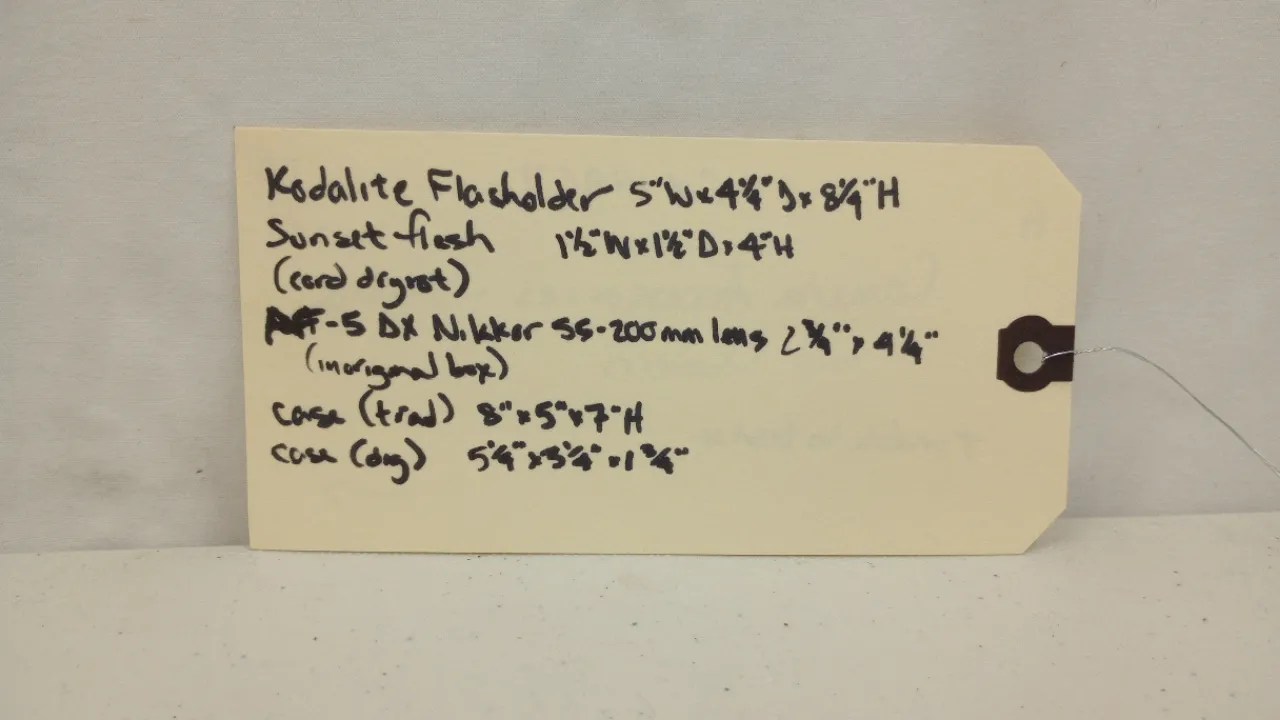 Kodalite Flasholder 5"W x 4¼"D x 8¼"H
Sunset flash 1½"W x 1½"D x 4"H
(cord dryrot)
AF-S DX Nikkor 55-200mm lens 2¾" x 4¼"
(in original box)
case (trad) 8" x 5" x 7"H
case (dig) 5¼" x 3¼" x 1¾"